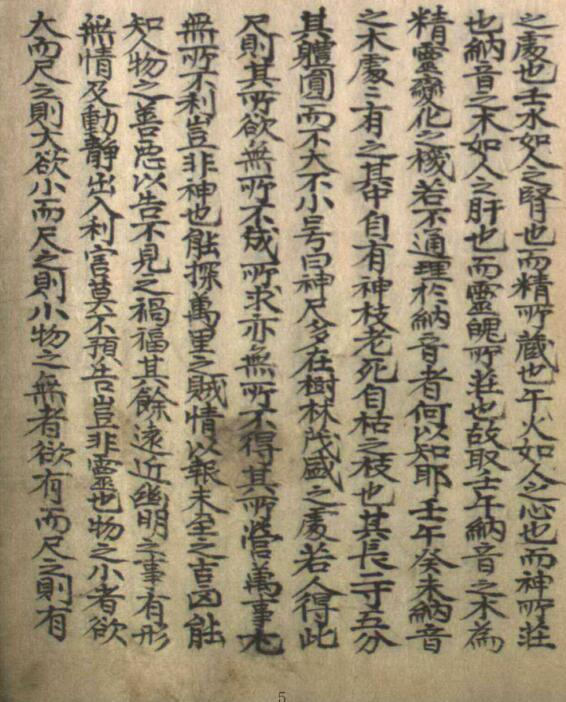 之處也壬水如人之腎也而精所藏也午火如人之心也而神所莊
也納音之木如人之肝也而靈魄所莊也故取壬午納音之木為
精靈變化之機若不通理於納音者何以知耶壬午癸未納音
之木處〻有之其中自有神枝老死自枯之枝也其長一寸五分
其體圓而不大不小号曰神尺多在樹林茂盛之處若人得此
尺則其所欲無所不成所求亦無所不得其所營萬事尤
無所不利豈非神也能探萬里之賊情以報未至之吉凶能
知人物之善惡以告不見之禍福其餘遠近幽明之事有形
無情及動靜出入利害莫不預告豈非靈也物之小者欲
大而尺之則大欲小而尺之則小物之無者欲有而尺之則有
5